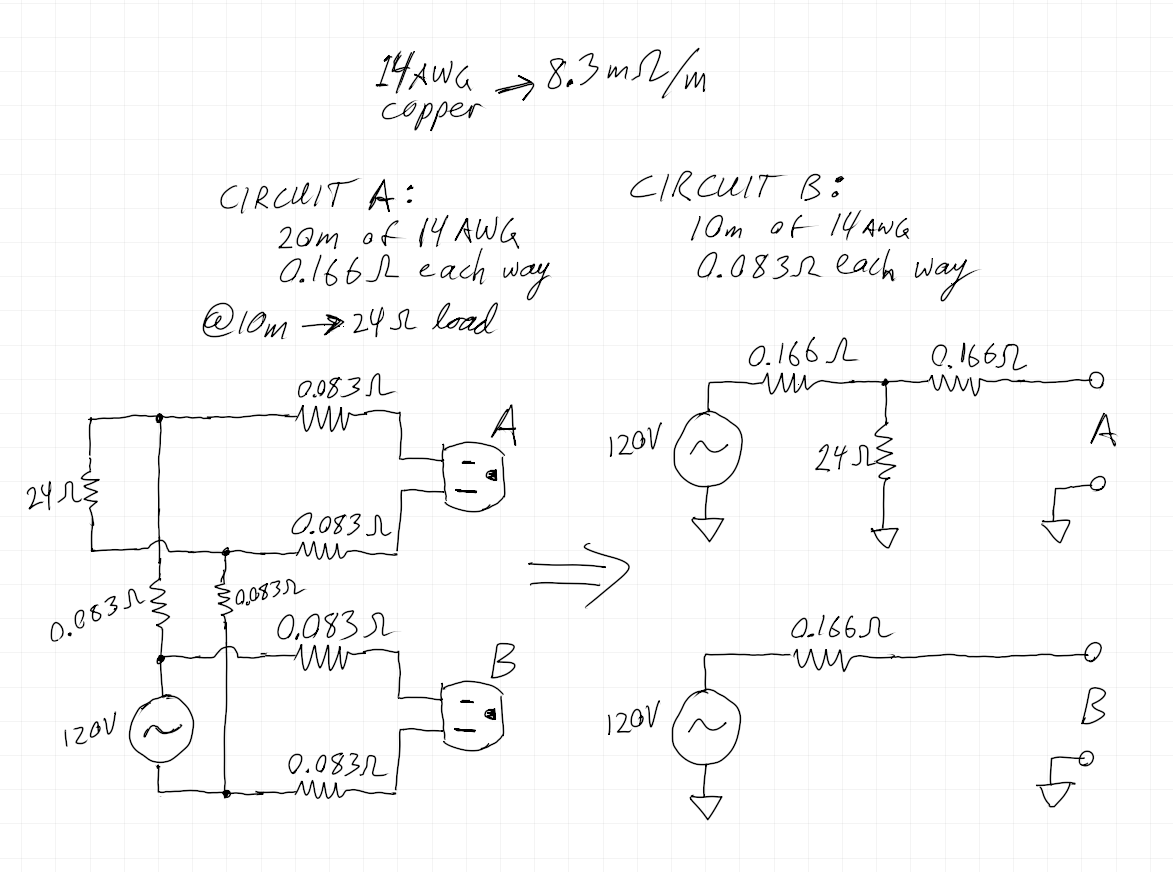 14 AWG → 8.3 mΩ/m
copper
CIRCUIT A:
20m of 14 AWG
0.166Ω each way
@10m → 24Ω load
CIRCUIT B:
10m of 14 AWG
0.083Ω each way
0.083Ω
A
24Ω
0.083Ω
0.083Ω
0.083Ω
0.083Ω
B
120V
0.083Ω
0.166Ω
0.166Ω
120V
24Ω
A
0.166Ω
120V
B